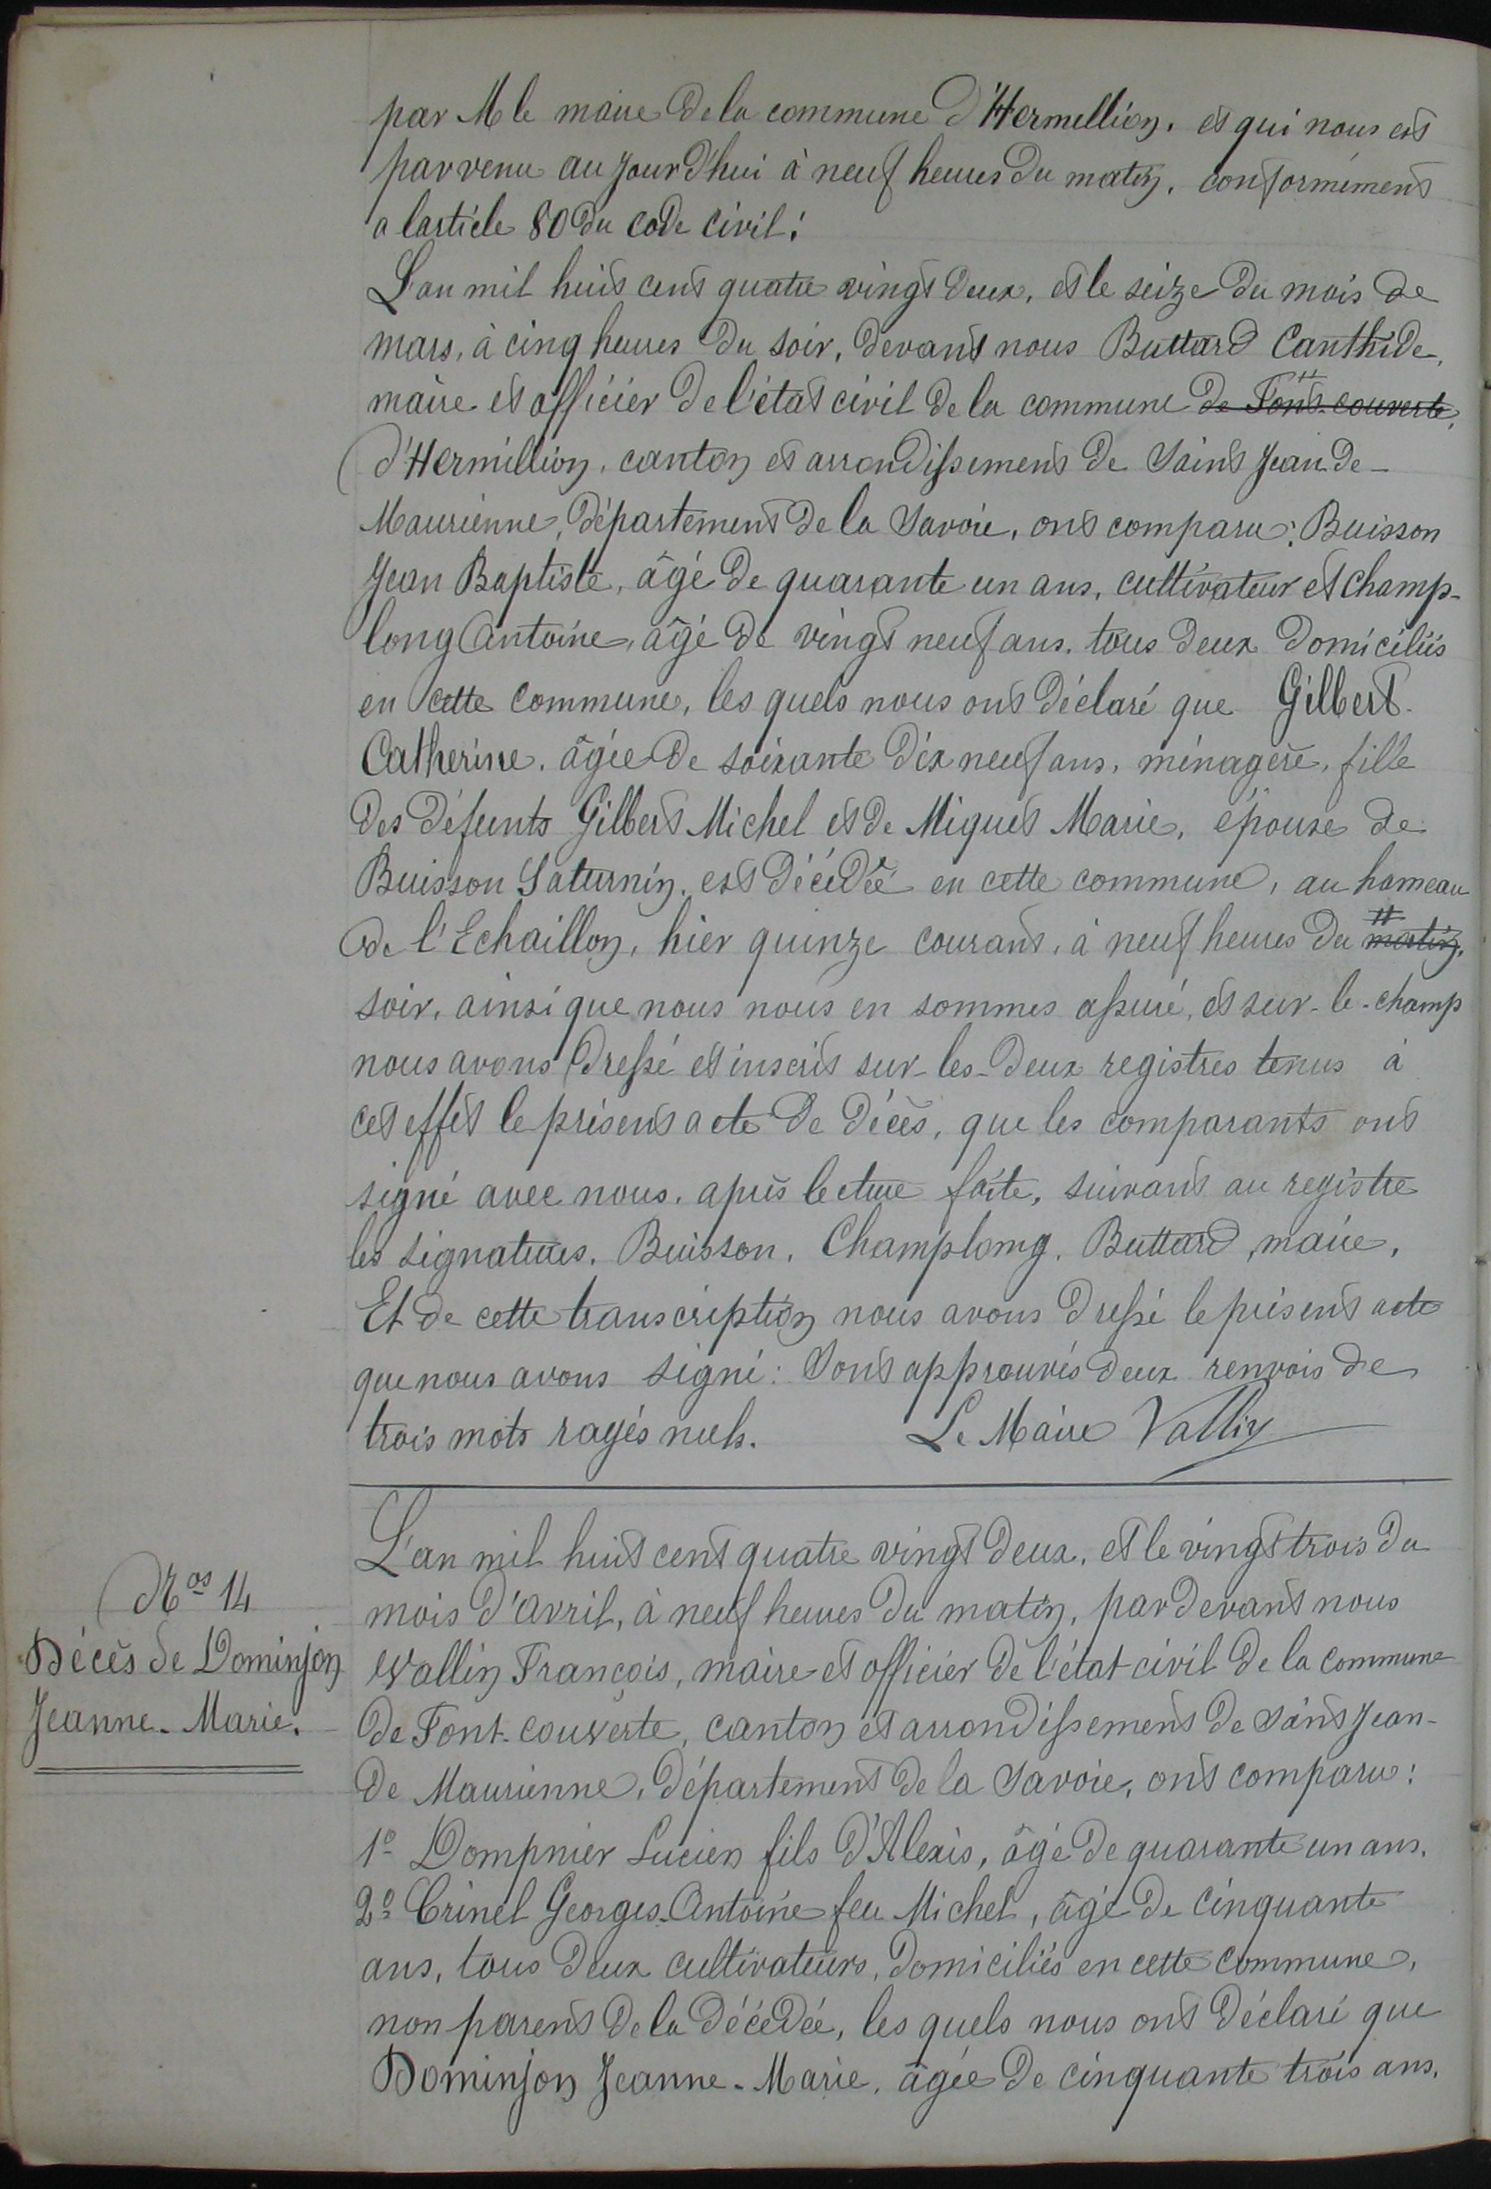 par M le maire de la commune d'Hermillion. et qui nous est
parvenu aujourd'hui à neuf heures du matin, conformément
a larticle 80 du code civil:
L'an mil huit cent quatre vingt deux, et le seize du mois de
mars, à cinq heures du soir, devant nous Buttard Canthide,
maire et officier de l'état civil de la commune de Font-couverte,
d'Hermillion, canton et arrondissement de Saint Jean de-
Maurienne, département de la Savoie, ont comparu: Buisson
Jean Baptiste, âgé de quarante un ans, cultivateur et Champ-
long Antoine, âgé de vingt neuf ans, tous deux domiciliés
en cette commune, les quels nous ont déclaré que Gilbert
Catherine, âgée de soixante dix neuf ans, ménagère, fille
des défunts Gilbert Michel et de Miquet Marie, épouse de
Buisson Saturnin, est décédée en cette commune, au hameau
de l'Echaillon, hier quinze courant, à neuf heures du matin,
soir, ainsi que nous nous en sommes assuré, et sur-le-champ
nous avons dressé et inscrit sur-les-deux registres tenus à
cet effet le présent acte de décès, que les comparants ont
signé avec nous, après lecture faite, suivant au registre
les signatures. Buisson. Champlong. Buttard, maire.
Et de cette transcription nous avons dressé le présent acte
que nous avons signé: Sont approuvés deux renvois de
trois mots rayés nuls. Le Maire Vallin
Nos 14
Décès de Dominjon
Jeanne-Marie.
L'an mil huit cent quatre vingt deux, et le vingt trois du
mois d'avril, à neuf heures du matin, par devant nous
Vallin François, maire et officier de l'état civil de la commune
de Font-couverte, canton et arrondissement de Saint Jean-
de Maurienne, département de la Savoie, ont comparu:
1º Dompnier Lucien fils d'Alexis, âgé de quarante un ans.
2º Crinel Georges-Antoine feu Michel, âgé de cinquante
ans, tous deux cultivateurs, domiciliés en cette commune,
non parent de la décédée, les quels nous ont déclaré que
Dominjon Jeanne-Marie, âgée de cinquante trois ans,